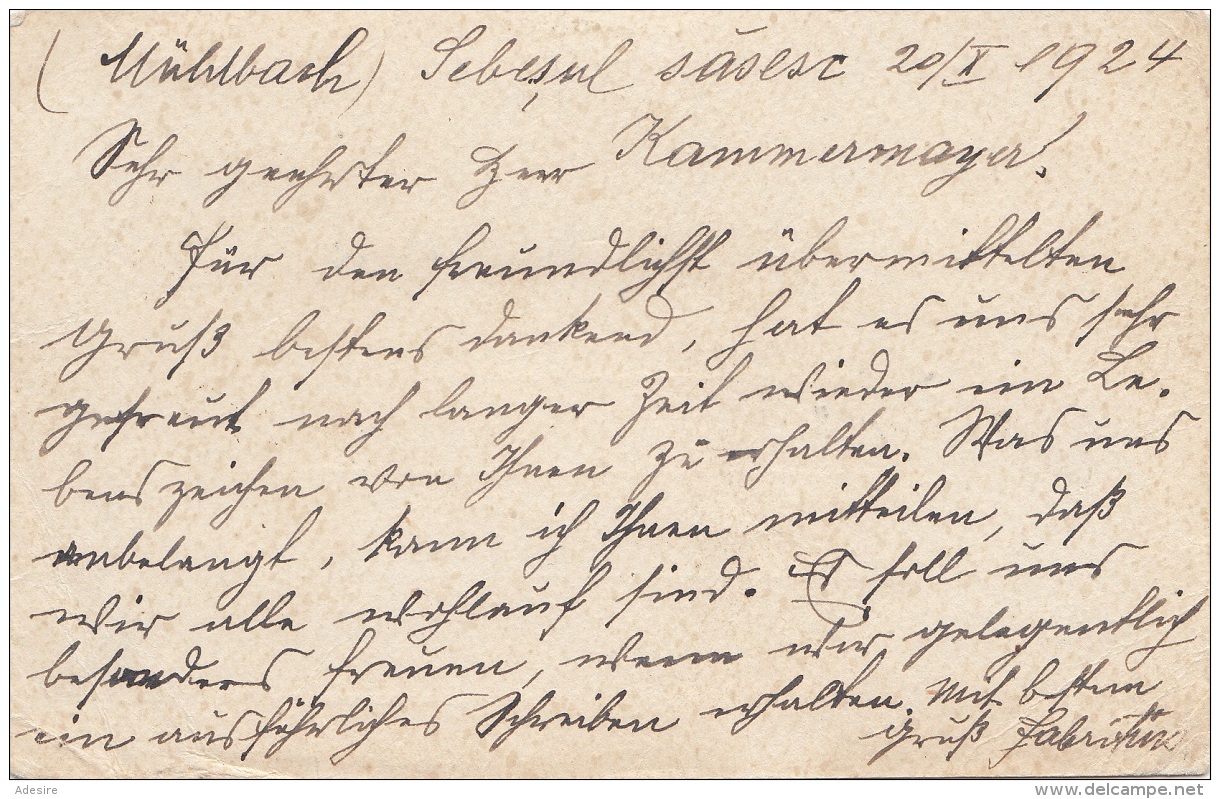 (Mühlbach) Sebeșul săsesc 20/X 1924
Sehr geehrter Herr Kammermayer!
Für den freundlichst übermittelten
Gruß bestens dankend, hat es uns sehr
gefreut nach langer Zeit wieder ein Le-
benszeichen von Ihnen zu erhalten. Was uns
anbelangt, kann ich Ihnen mitteilen, daß
wir alle wohlauf sind. Es soll uns
besonders freuen, wenn wir gelegentlich
ein ausführliches Schreiben erhalten. Mit bestem
Gruß
Adesire
delcampe.net